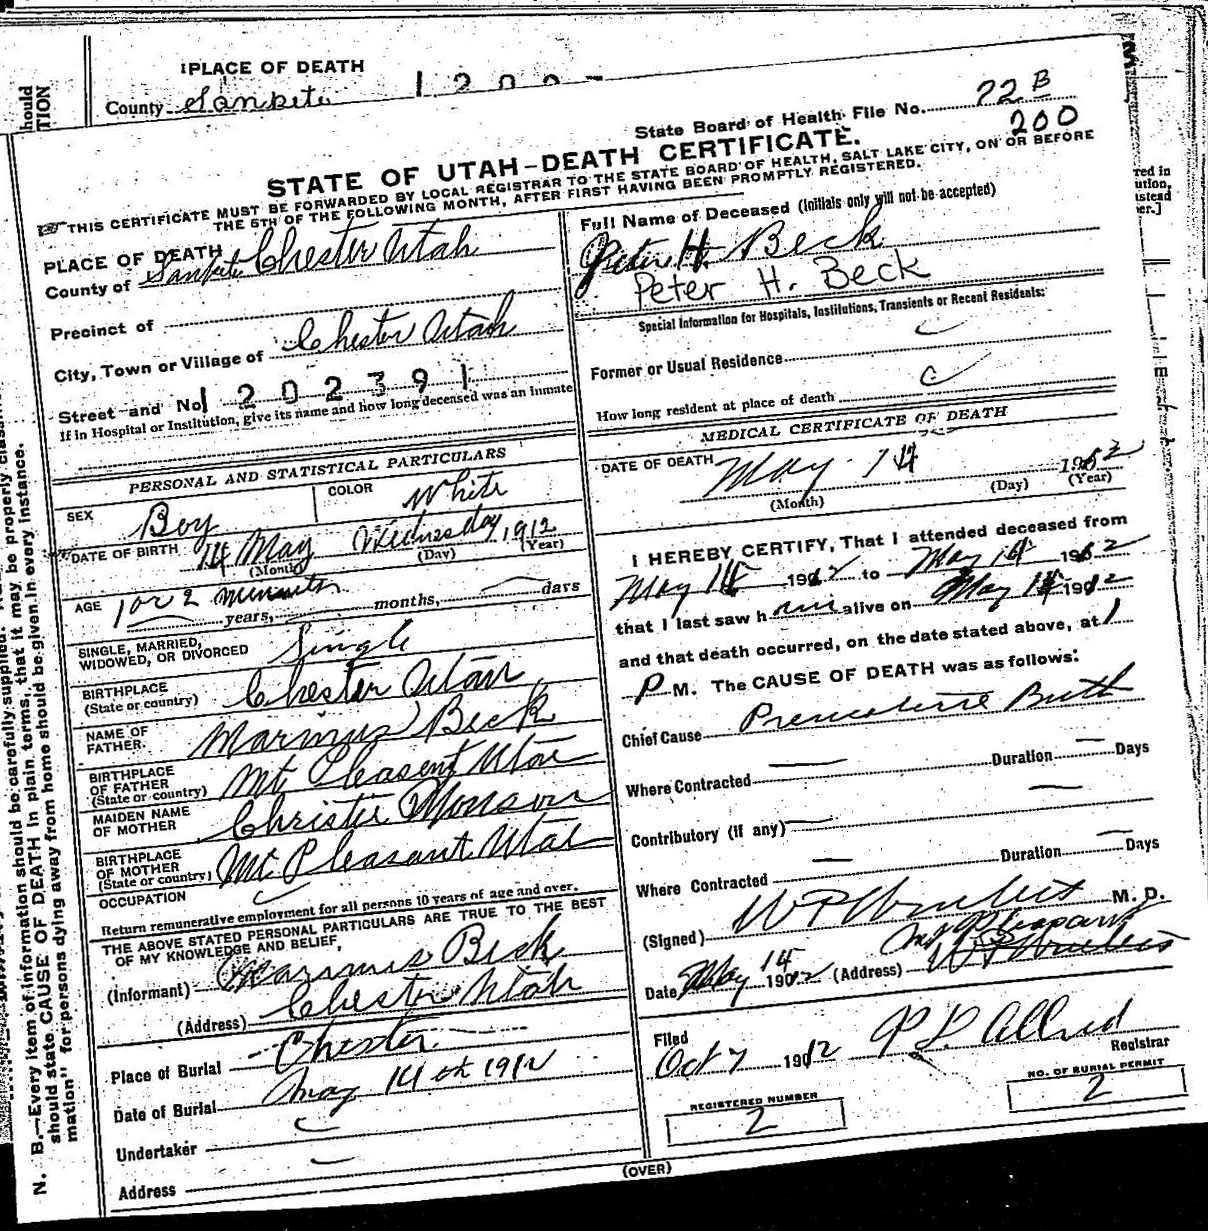 PLACE OF DEATH
County Sanpete
State Board of Health File No. 22 B
200
STATE OF UTAH—DEATH CERTIFICATE.
THIS CERTIFICATE MUST BE FORWARDED BY LOCAL REGISTRAR TO THE STATE BOARD OF HEALTH, SALT LAKE CITY, ON OR BEFORE
THE 5TH OF THE FOLLOWING MONTH, AFTER FIRST HAVING BEEN PROMPTLY REGISTERED.
PLACE OF DEATH
County of Sanpete Chester Utah
Precinct of
City, Town or Village of Chester Utah
Street and No. 1202391
If in Hospital or Institution, give its name and how long deceased was an inmate
PERSONAL AND STATISTICAL PARTICULARS
SEX Boy COLOR White
DATE OF BIRTH 14 May Wednesday, 1912
(Month) (Day) (Year)
AGE 1 or 2 minutes years, months, days
SINGLE, MARRIED, WIDOWED, OR DIVORCED Single
BIRTHPLACE (State or country) Chester Utah
NAME OF FATHER. Marinus Beck
BIRTHPLACE OF FATHER (State or country) Mt Pleasent Utah
MAIDEN NAME OF MOTHER Christie Monson
BIRTHPLACE OF MOTHER (State or country) Mt Pleasant Utah
OCCUPATION
Return remunerative employment for all persons 10 years of age and over.
THE ABOVE STATED PERSONAL PARTICULARS ARE TRUE TO THE BEST
OF MY KNOWLEDGE AND BELIEF,
(Informant) Marinus Beck
(Address) Chester Utah
Place of Burial Chester
Date of Burial May 14th 1912
Undertaker
Address
Full Name of Deceased (Initials only will not be accepted)
Peter H. Beck
Peter H. Beck
Special Information for Hospitals, Institutions, Transients or Recent Residents:
Former or Usual Residence
How long resident at place of death
MEDICAL CERTIFICATE OF DEATH
DATE OF DEATH May 14 1912
(Month) (Day) (Year)
I HEREBY CERTIFY, That I attended deceased from
May 14 1912 to May 14 1912
that I last saw h im alive on May 14 1912
and that death occurred, on the date stated above, at 1
P M. The CAUSE OF DEATH was as follows:
Chief Cause Premature Birth
Where Contracted Duration Days
Contributory (if any)
Where Contracted Duration Days
(Signed) W P M. D.
Date May 14 1912 (Address) Mt Pleasant
Filed
Oct 7 1912 Allred
Registrar
REGISTERED NUMBER
2
NO. OF BURIAL PERMIT
2
(OVER)
N. B.—Every item of information should be carefully supplied.
should state CAUSE OF DEATH in plain terms, that it may be properly
mation" for persons dying away from home should be given in every instance.